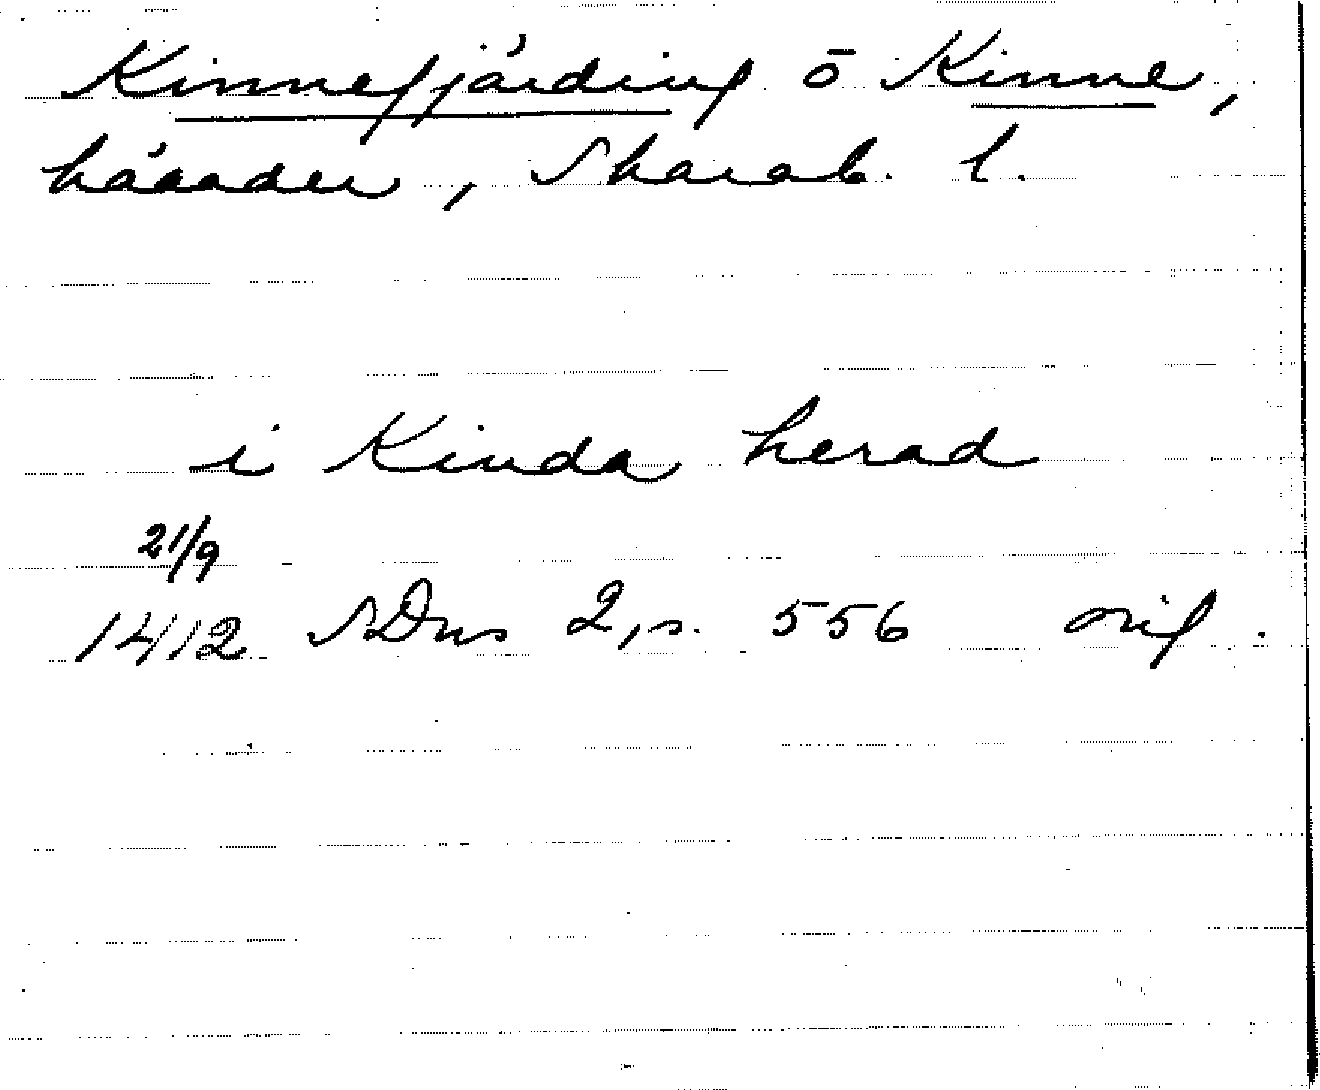 Kinnefjärding o Kinne,
härader, Skarab. l.
i Kinda herad
21/9
1412 SDns 2, s. 556 orig.